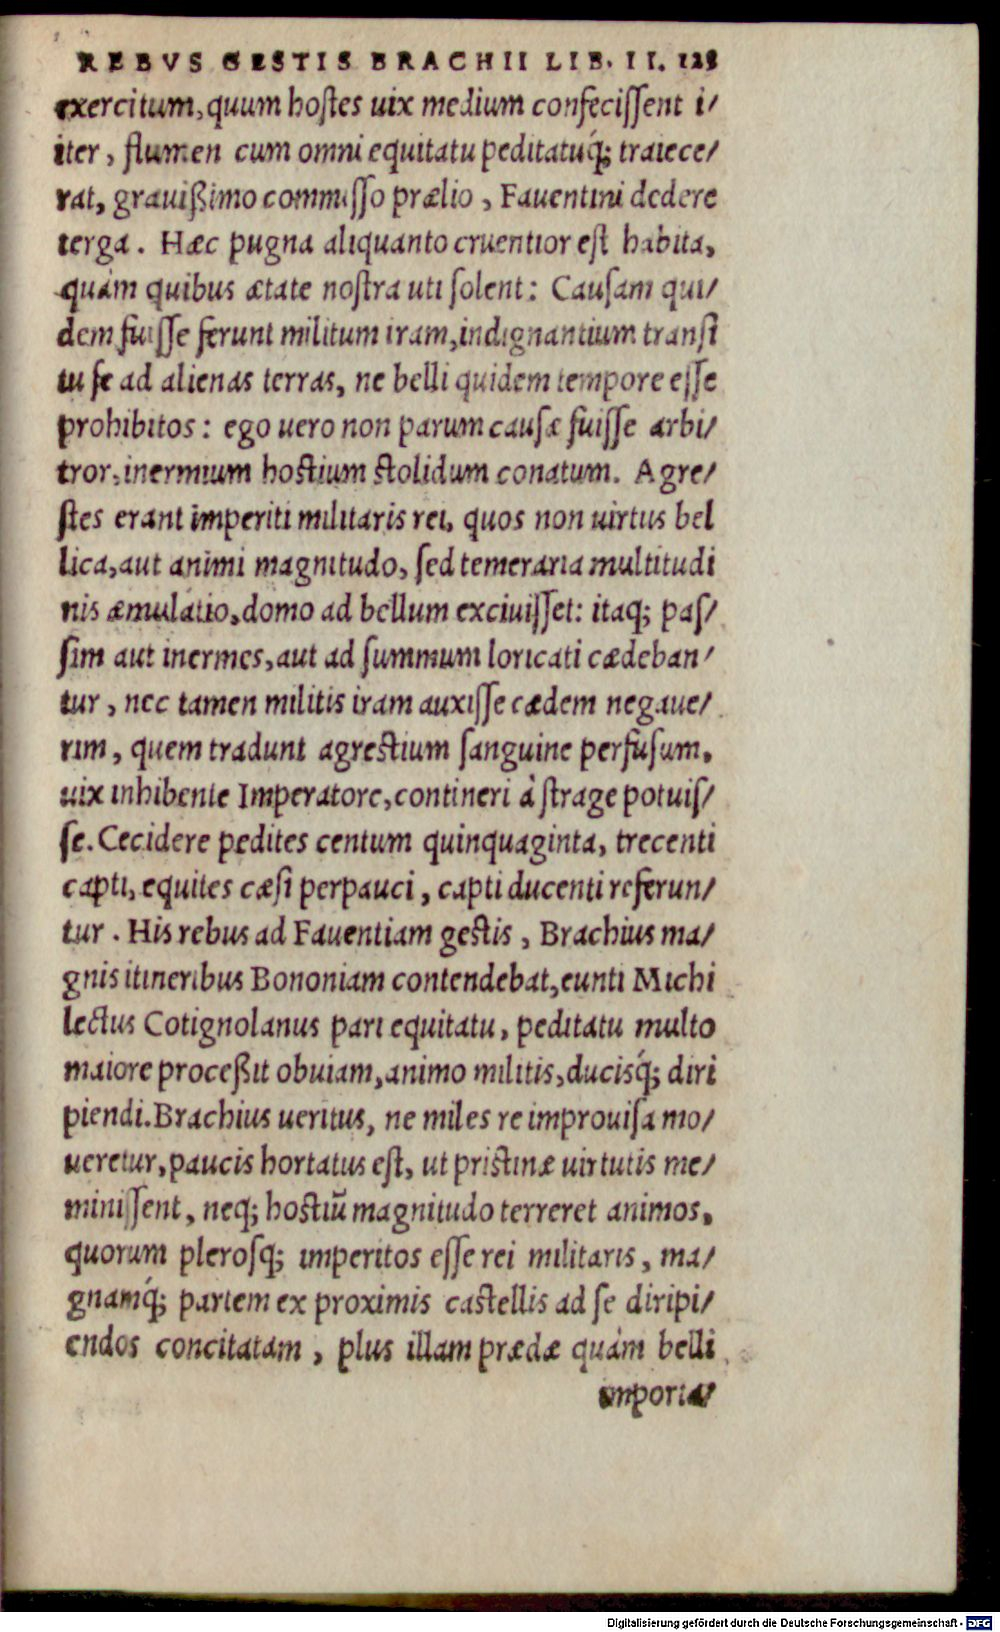 REBVS GESTIS BRACHII LIB. II. 128
exercitum, quum hoſtes uix medium confeciſſent i/
iter, flumen cum omni equitatu peditatuq́; traiece/
rat, grauißimo commiſſo prælio, Fauentini dedere
terga. Hæc pugna aliquanto cruentior eſt habita,
quàm quibus ætate noſtra uti ſolent: Cauſam qui/
dem fuiſſe ferunt militum iram, indignantium tranſi
tu ſe ad alienas terras, ne belli quidem tempore eſſe
prohibitos: ego uero non parum cauſæ fuiſſe arbi/
tror, inermium hoſtium ſtolidum conatum. Agre/
ſtes erant imperiti militaris rei, quos non uirtus bel
lica, aut animi magnitudo, ſed temeraria multitudi
nis æmulatio, domo ad bellum exciuiſſet: itaq; paſ/
ſim aut inermes, aut ad ſummum loricati cædeban/
tur, nec tamen militis iram auxiſſe cædem negaue/
rim, quem tradunt agreſtium ſanguine perfuſum,
uix inhibente Imperatore, contineri à ſtrage potuiſ/
ſe. Cecidere pedites centum quinquaginta, trecenti
capti, equites cæſi perpauci, capti ducenti referun/
tur. His rebus ad Fauentiam geſtis, Brachius ma/
gnis itineribus Bononiam contendebat, eunti Michi
lectus Cotignolanus pari equitatu, peditatu multo
maiore proceßit obuiam, animo militis, duciſq́; diri
piendi. Brachius ueritus, ne miles re improuiſa mo/
ueretur, paucis hortatus eſt, ut priſtinæ uirtutis me/
miniſſent, neq; hoſtiũ magnitudo terreret animos,
quorum pleroſq; imperitos eſſe rei militaris, ma/
gnamq́; partem ex proximis caſtellis ad ſe diripi/
endos concitatam, plus illam prædæ quàm belli
imporia/
Digitalisierung gefördert durch die Deutsche Forschungsgemeinschaft - DFG